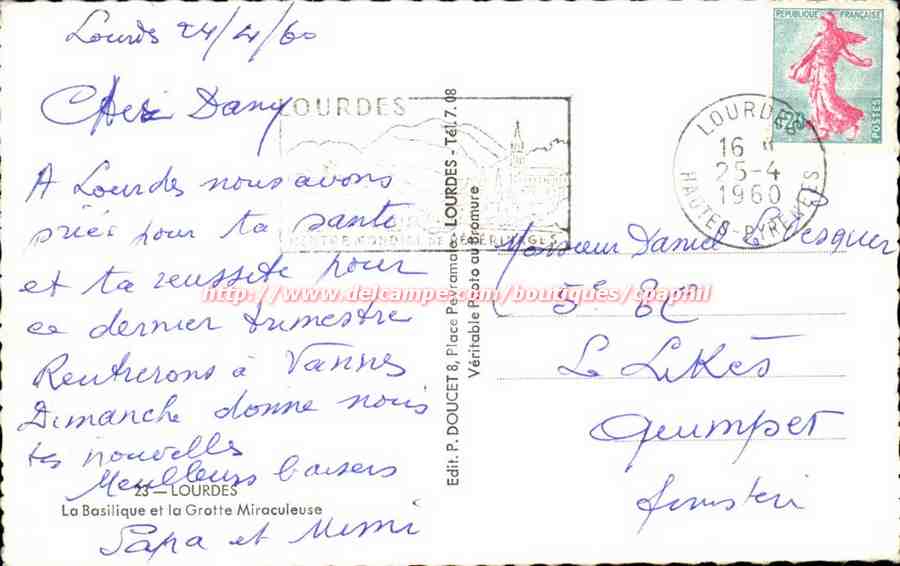 Lourdes 24/4/60
Cher Dany
A Lourdes nous avons
prié pour ta santé
et ta reussite pour
ce dernier trimestre
Rentrerons à Vannes
Dimanche donne nous
tes nouvelles
Meilleurs baisers
Papa et Mimi
23 — LOURDES
La Basilique et la Grotte Miraculeuse
Edit. P. DOUCET 8, Place Peyramale - LOURDES - Tél. 7.08
Véritable Photo au Bromure
LOURDES
CENTRE MONDIAL DE PÈLERINAGES
REPUBLIQUE FRANÇAISE
POSTES
LOURDES
16 H
25-4
1960
HAUTES-PYRÉNÉES
Monsieur Daniel
5e
Le Likès
Quimper
finistère
http://www.delcampe.com/boutiques/cpaphil